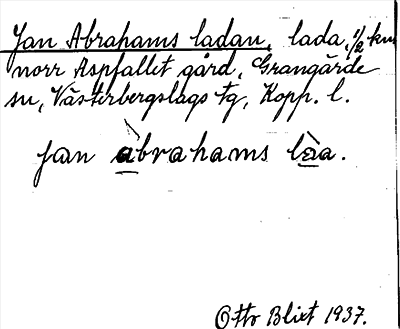 Jan Abrahams ladan, lada, 1/2 km
norr Aspfallet gård, Grangärde
sn, Västerbergslags tg, Kopp. l.
jan àbrahams là̱a.
Otto Blixt 1937.